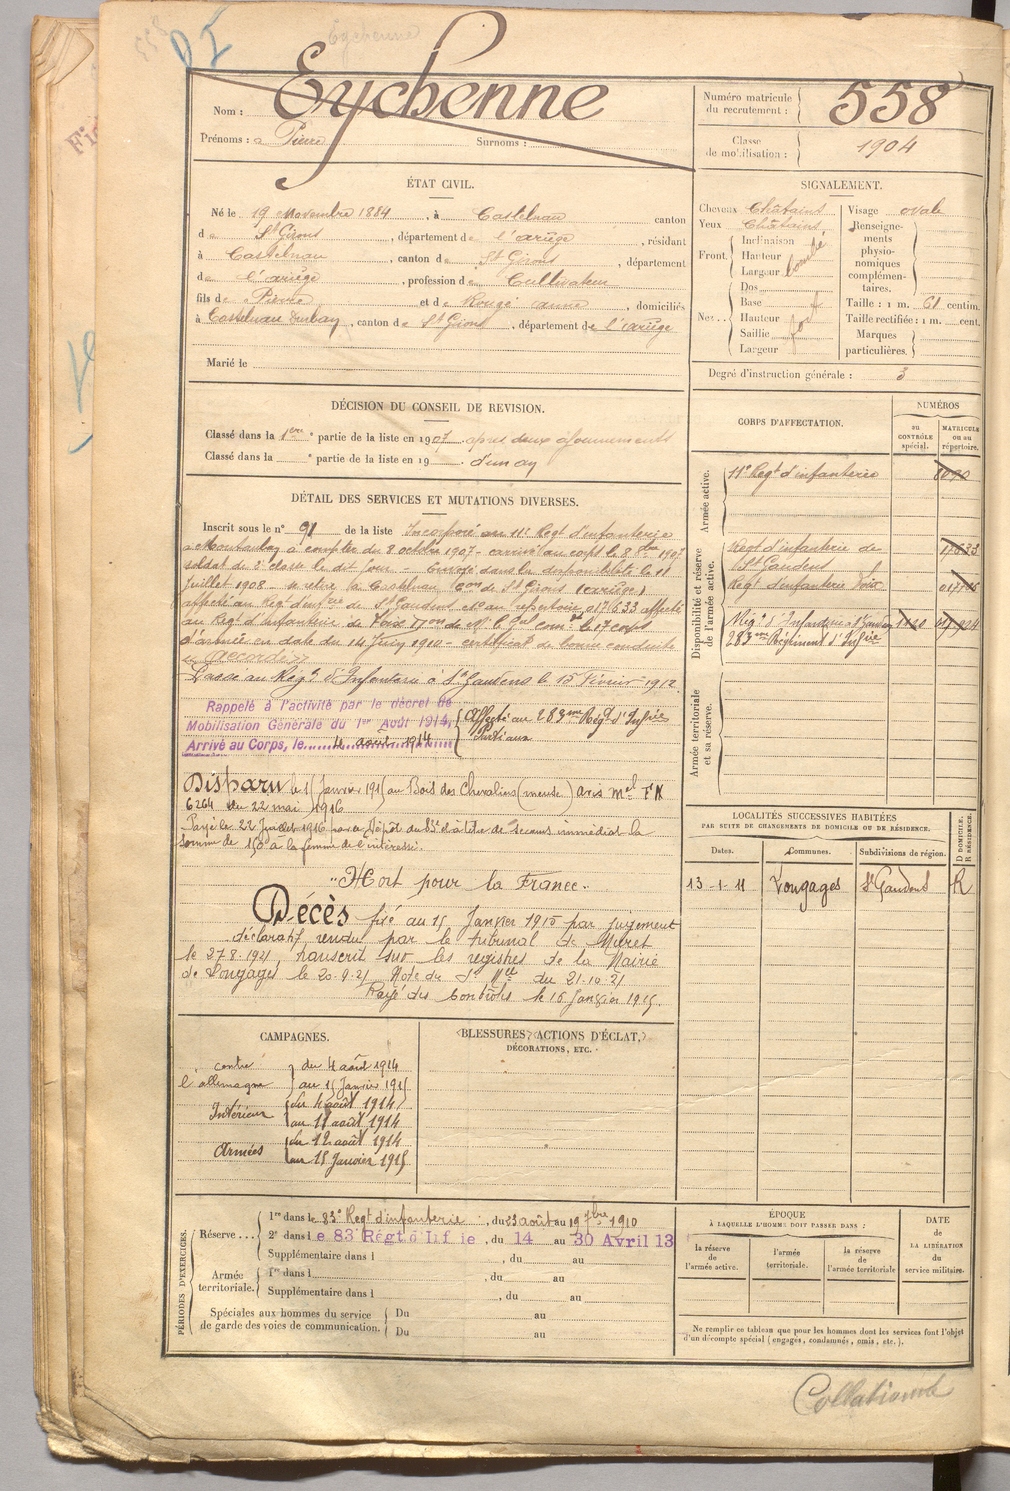 Eychenne
DI
Nom : Eychenne
Prénoms : Pierre Surnoms :
Numéro matricule du recrutement : 558
Classe de mobilisation : 1904
ÉTAT CIVIL.
Né le 19 Novembre 1884, à Castelnau canton
de St Girons, département de l'ariège, résidant
à Castelnau, canton de St Girons, département
de l'ariège, profession de Cultivateur
fils de Pierre et de Rougé anne, domiciliés
à Castelnau Durban, canton de St Girons, département de l'ariège
Marié le
SIGNALEMENT.
Cheveux Châtains
Yeux Châtains
Front. Inclinaison
Hauteur
Largeur bombé
Nez. Dos
Base
Hauteur
Saillie fort
Largeur
Visage ovale
Renseignements physionomiques complémentaires.
Taille : 1 m. 61 centim.
Taille rectifiée : 1 m. cent.
Marques particulières.
Degré d'instruction générale : 3
DÉCISION DU CONSEIL DE REVISION.
Classé dans la 1ere partie de la liste en 1907 apres deux ajournements
Classé dans la e partie de la liste en 19 d'un an
DÉTAIL DES SERVICES ET MUTATIONS DIVERSES.
Inscrit sous le n° 91 de la liste Incorporé au 11e Regt d'infanterie
à Montauban à compter du 8 octobre 1907 - arrivé au corps le 8 8bre 1907
soldat de 2e classe le dit jour - Envoyé dans la disponibilité le 11
Juillet 1908 - se retire à Castelnau Con de St Girons (ariège)
affecté au Regt d'infrie de St Gaudens et au repertoire 017633 affecté
au Regt d'infanterie de Foix le 17 corps
d'armée en date du 14 Juin 1910 - certificat de bonne conduite
accordé
Passe au Régt d'Infanterie à St Gaudens le 15 Février 1912.
Rappelé à l'activité par le décret de
Mobilisation Générale du 1er Août 1914,
Arrivé au Corps, le 4 août 1914
Affecté au 283me Regt d'Infrie
Disparu le 15 Janvier 1915 au Bois des Chevaliers (meuse) avis mel FN
6264 du 22 mai 1916
Payé le 22 Juillet 1916 par le Dépôt du 83e à titre de secours immédiat la
somme de 150f à la femme de l'intéressé.
"Mort pour la France".
Décès fixé au 15 Janvier 1915 par jugement
déclaratif rendu par le tribunal de Muret
le 27-8-1921, transcrit sur les registres de la Mairie
de Longages le 20-9-21 Note du du 21-10-21
Rayé des Contrôles le 16 Janvier 1915.
CORPS D'AFFECTATION.
NUMÉROS
au CONTRÔLE spécial.
MATRICULE ou au répertoire.
Armée active.
11e Regt d'infanterie
Disponibilité et réserve de l'armée active.
Regt d'infanterie de St Gaudens 17633
Regt d'infanterie Foix
Régt d'Infanterie à St Gaudens
283me Régiment d'Infrie
Armée territoriale et sa réserve.
LOCALITÉS SUCCESSIVES HABITÉES
PAR SUITE DE CHANGEMENTS DE DOMICILE OU DE RÉSIDENCE.
D DOMICILE. R RÉSIDENCE.
Dates. Communes. Subdivisions de région.
13-1-11 Longages St Gaudens R
CAMPAGNES.
contre l'allemagne du 4 août 1914
au 15 Janvier 1915
Intérieur du 4 août 1914
au 11 août 1914
Armées du 12 août 1914
au 15 Janvier 1915
BLESSURES, ACTIONS D'ÉCLAT,
DÉCORATIONS, ETC.
PÉRIODES D'EXERCICES.
Réserve... 1re dans le 83e Regt d'infanterie, du 23 août au 19 7bre 1910
2e dans le 83 Régt d'Inf ie, du 14 au 30 Avril 13
Supplémentaire dans l , du au
Armée territoriale. 1re dans l , du au
Supplémentaire dans l , du au
Spéciales aux hommes du service de garde des voies de communication. Du au
Du au
ÉPOQUE
À LAQUELLE L'HOMME DOIT PASSER DANS :
la réserve de l'armée active.
l'armée territoriale.
la réserve de l'armée territoriale
DATE de LA LIBÉRATION du service militaire.
Ne remplir ce tableau que pour les hommes dont les services font l'objet
d'un décompte spécial (engagés, condamnés, omis, etc.).
Collationné